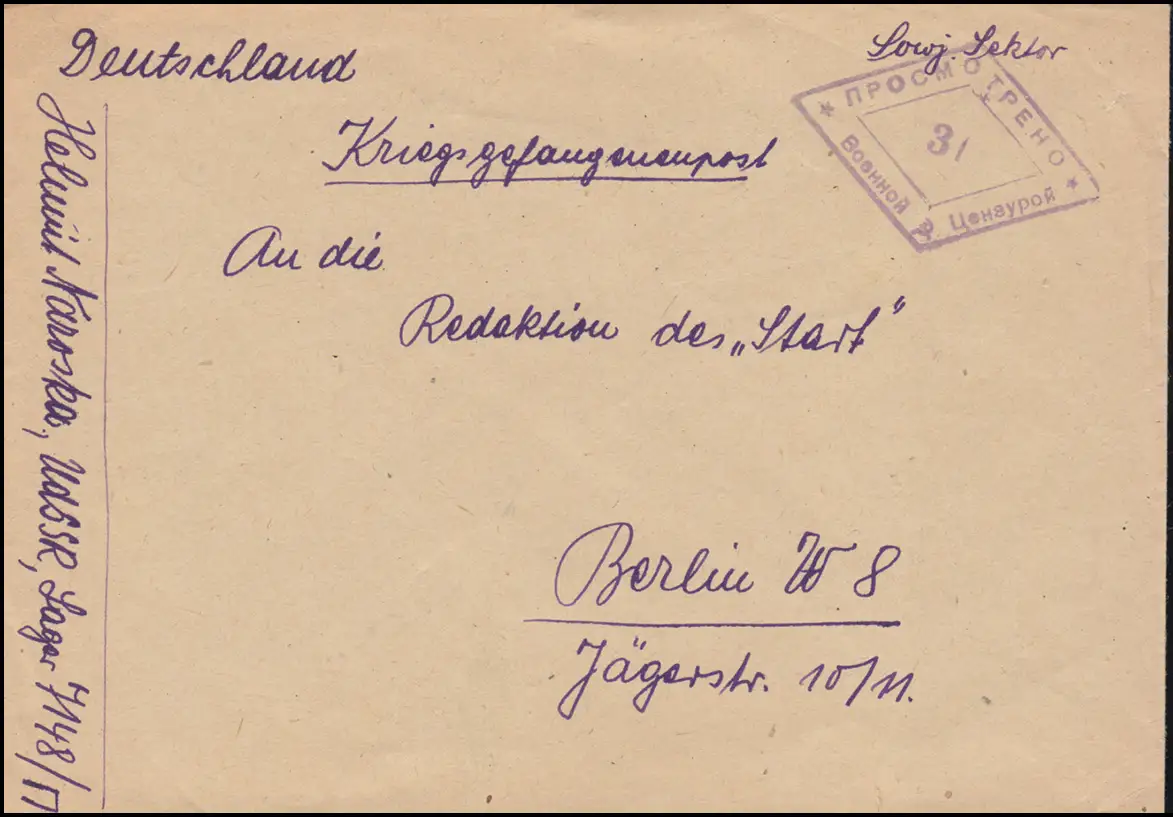 Deutschland
Sowj. Sektor
ПРОСМОТРЕНО
Военной Цензурой
Kriegsgefangenenpost
An die
Redaktion des „Start“
Berlin W 8
Jägerstr. 10/11.
UdSSR, Lager 7148/